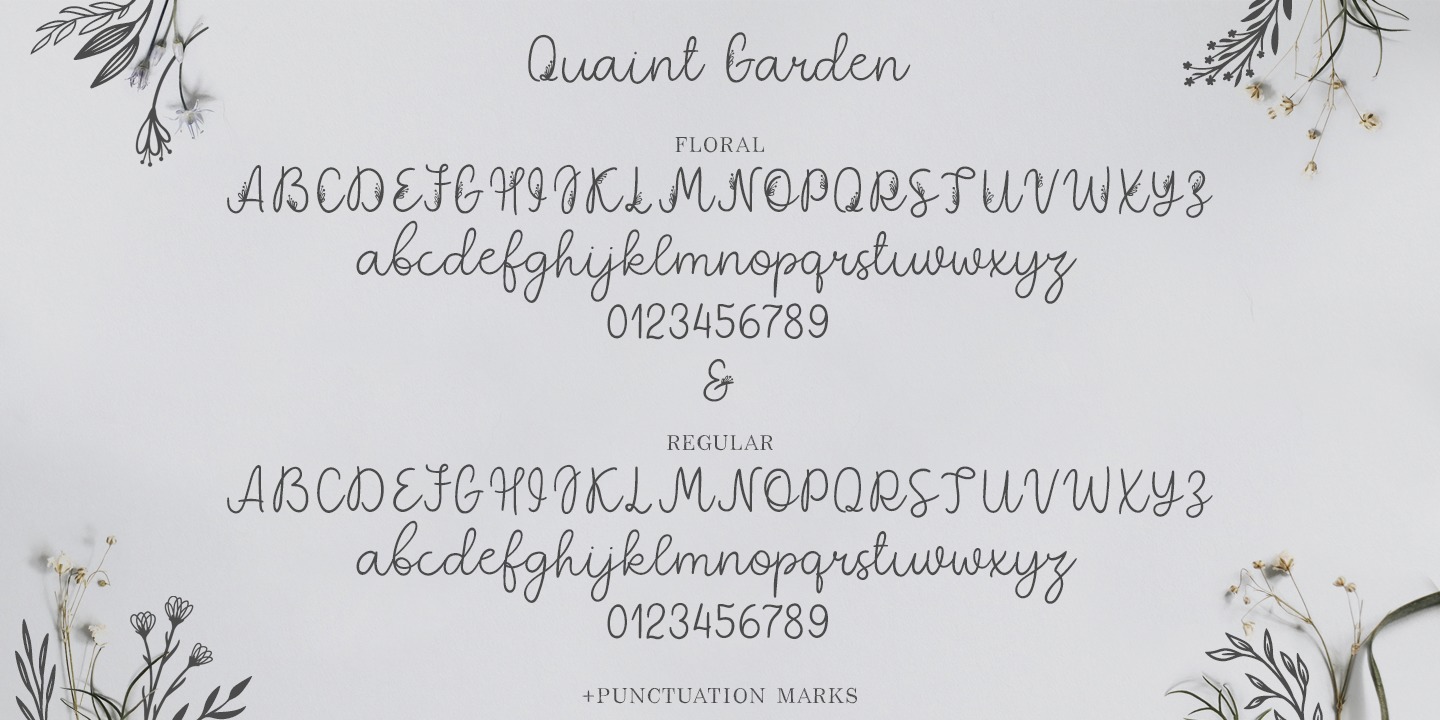 Quaint Garden
FLORAL
ABCDEFGHIJKLMNOPQRSTUVWXYZ
abcdefghijklmnopqrstuvwxyz
0123456789
&
REGULAR
ABCDEFGHIJKLMNOPQRSTUVWXYZ
abcdefghijklmnopqrstuvwxyz
0123456789
+PUNCTUATION MARKS